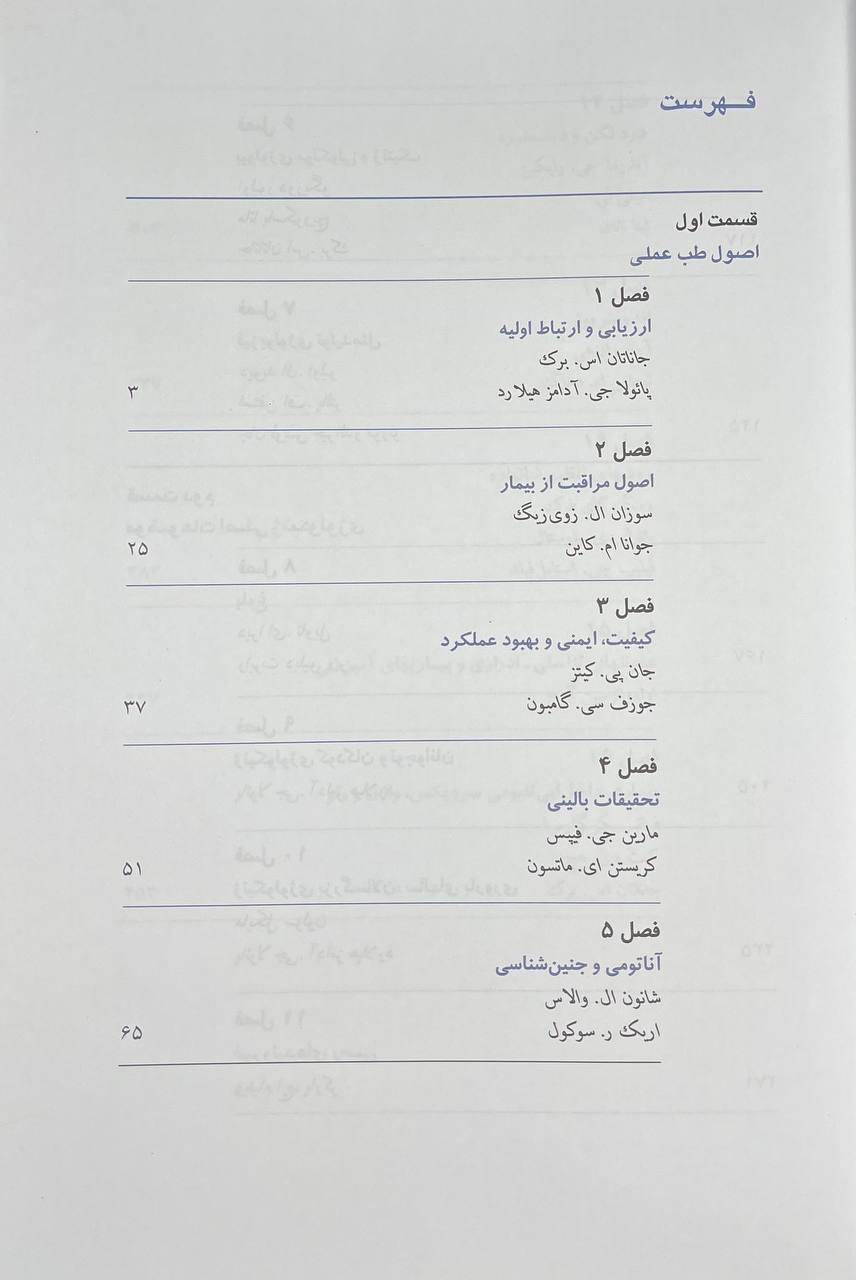 فهرست
قسمت اول
اصول طب عملی
فصل ۱
ارزیابی و ارتباط اولیه
جاناتان اس. برک
پائولا جی. آدامز هیلارد
۳
فصل ۲
اصول مراقبت از بیمار
سوزان ال. زوی‌زیگ
جوانا ام. کاین
۲۵
فصل ۳
کیفیت، ایمنی و بهبود عملکرد
جان پی. کیتز
جوزف سی. گامبون
۳۷
فصل ۴
تحقیقات بالینی
مارین جی. فیپس
کریستن ای. ماتسون
۵۱
فصل ۵
آناتومی و جنین‌شناسی
شانون ال. والاس
اریک ر. سوکول
۶۵